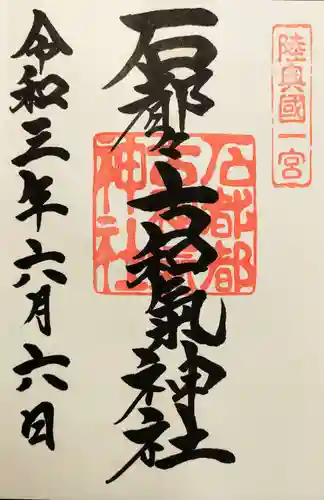 陸奥國一宮
石都々古和氣神社
石都都古和氣神社
令和三年六月六日